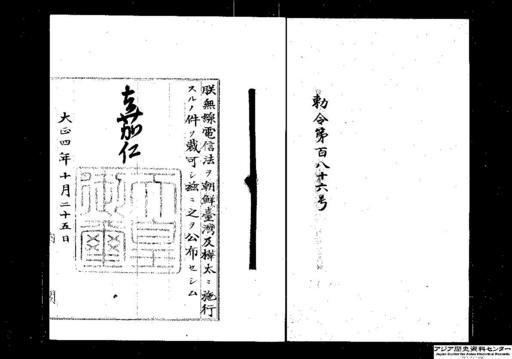 勅令第百八十六号
朕無線電信法ヲ朝鮮臺灣及樺太ニ施行
スルノ件ヲ裁可シ茲ニ之ヲ公布セシム
嘉仁
天皇御璽
大正四年十月二十五日
アジア歴史資料センター
Japan Center for Asian Historical Records